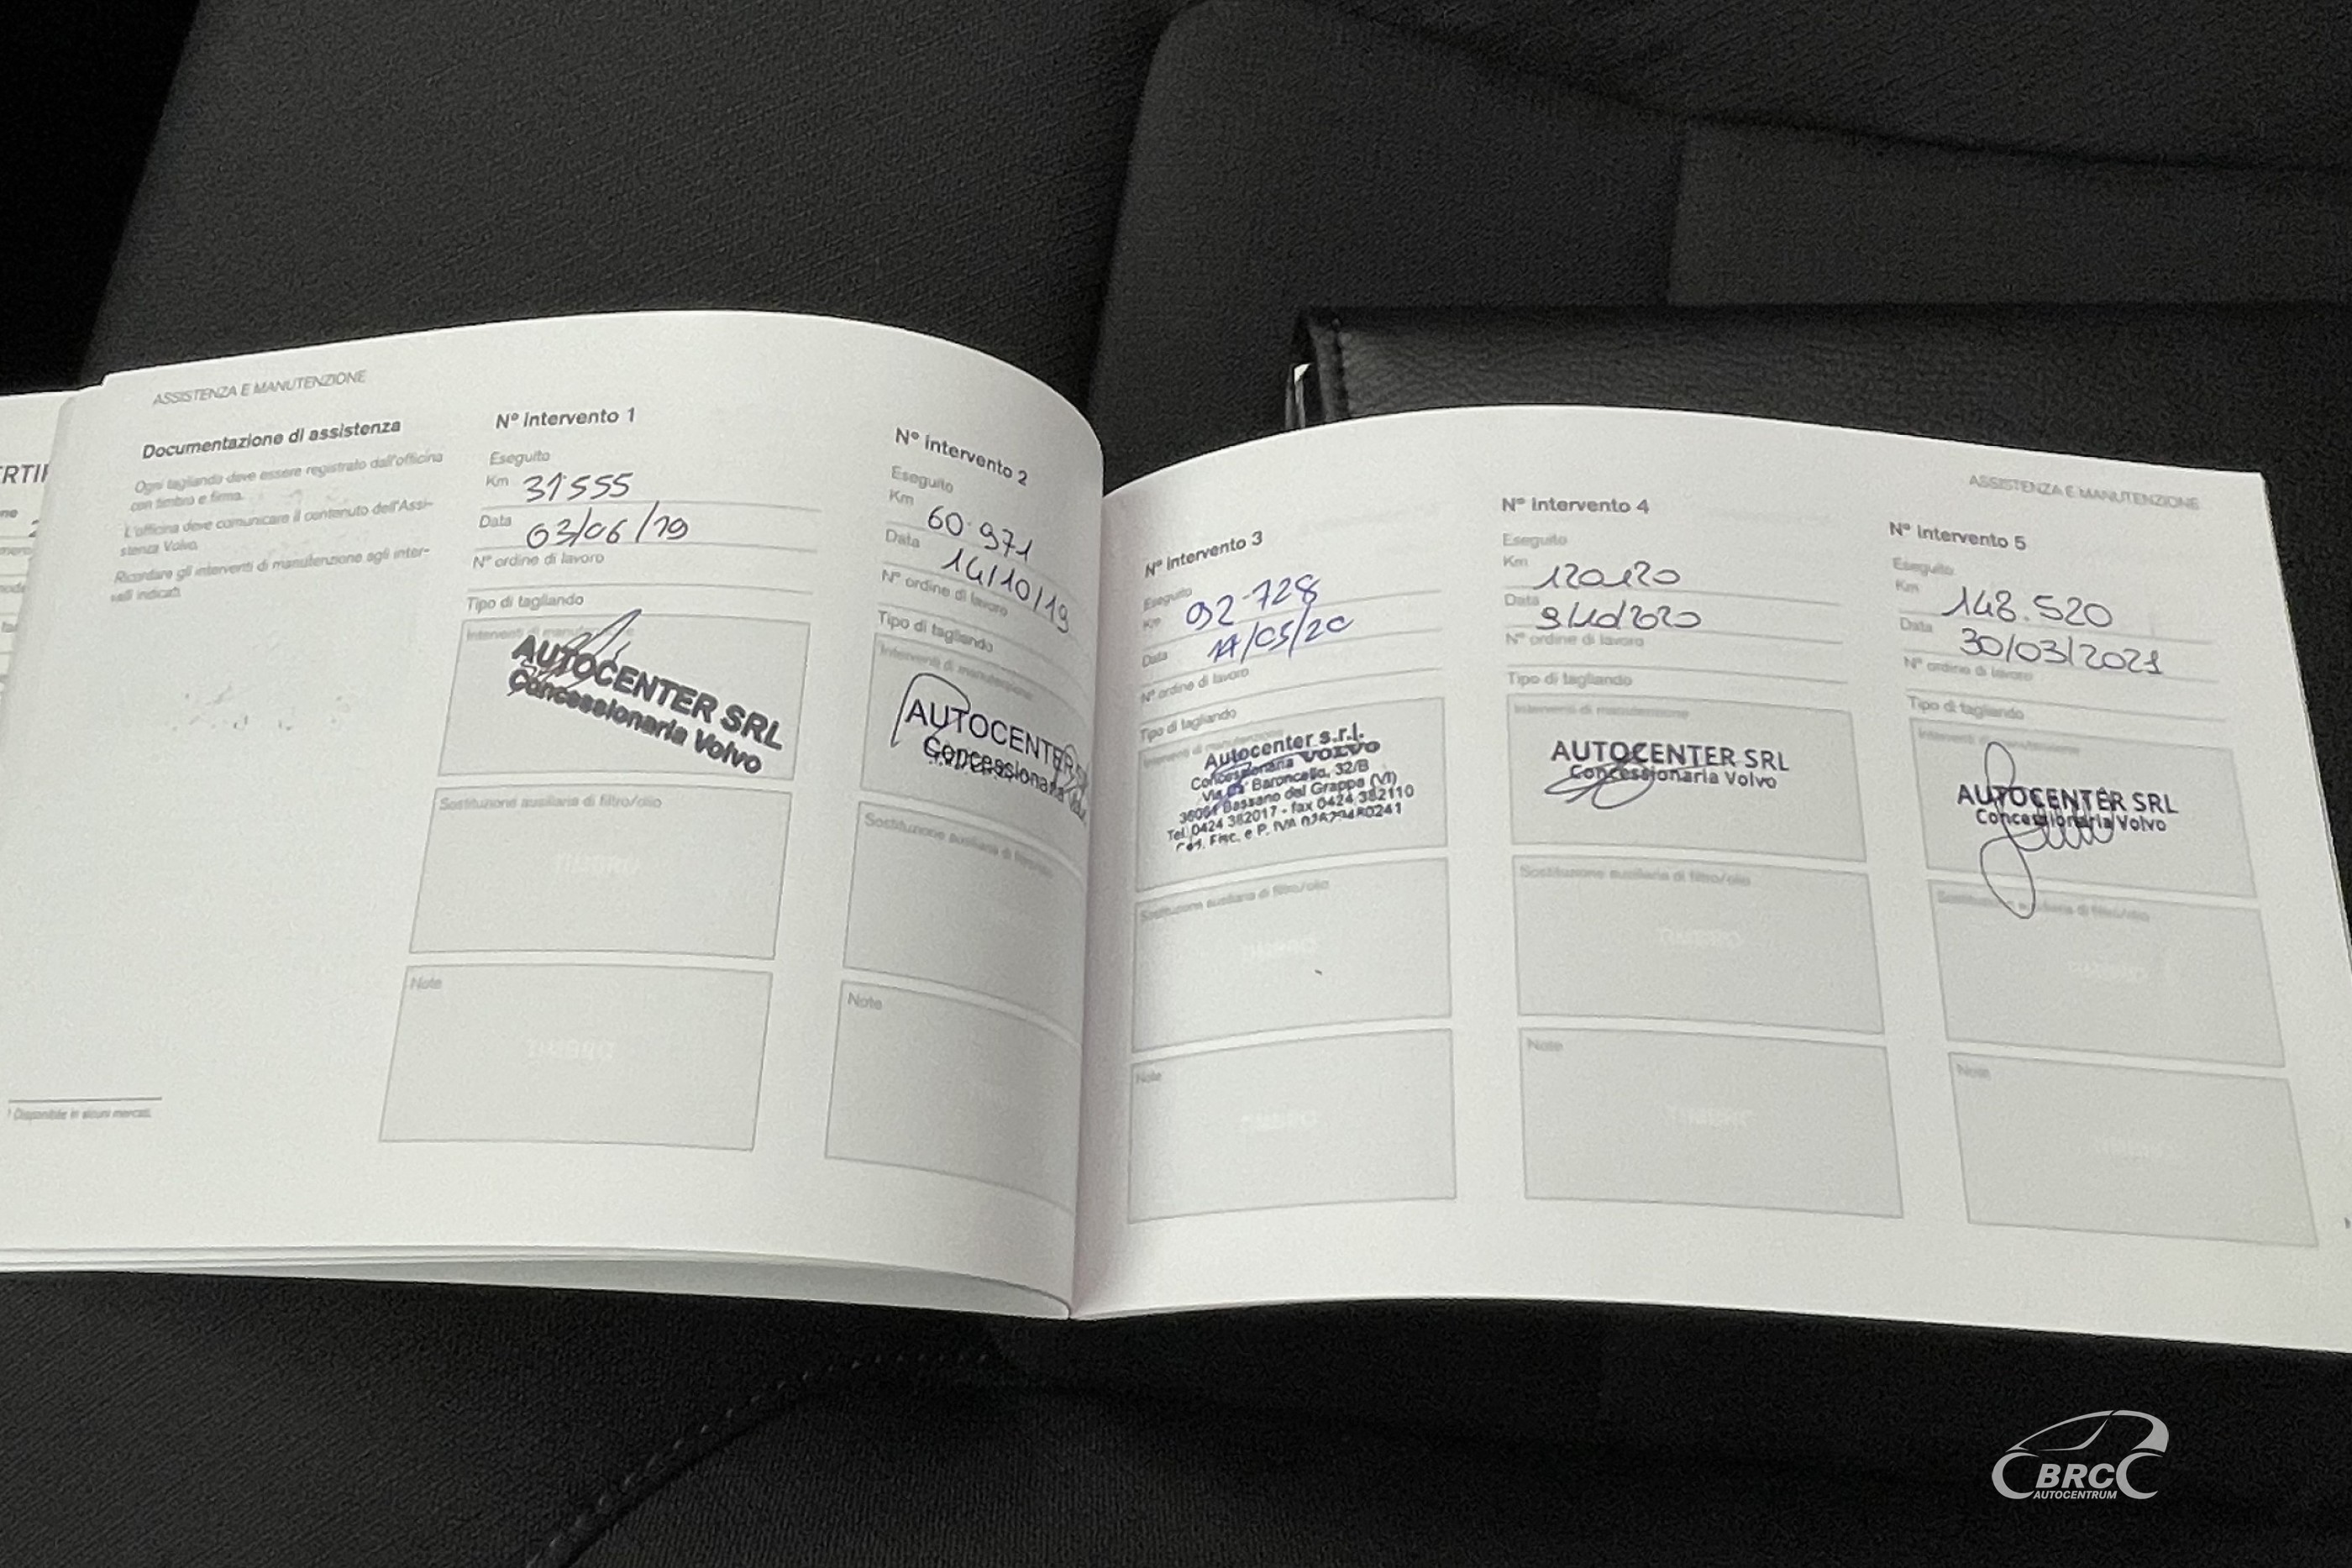 ASSISTENZA E MANUTENZIONE
Documentazione di assistenza
Ogni tagliando deve essere registrato dall'officina
con timbro e firma.
L'officina deve comunicare il contenuto dell'Assi-
stenza Volvo.
Ricordare gli interventi di manutenzione agli inter-
valli indicati.
¹ Disponibile in alcuni mercati.
Nº Intervento 1
Eseguito
Km 31555
Data 03/06/19
N° ordine di lavoro
Tipo di tagliando
Interventi di manutenzione
AUTOCENTER SRL
Concessionaria Volvo
Sostituzione ausiliaria di filtro/olio
TIMBRO
Note
TIMBRO
Nº Intervento 2
Eseguito
Km 60.971
Data 14/10/19
N° ordine di lavoro
Tipo di tagliando
Interventi di manutenzione
AUTOCENTER
Concessionaria
Sostituzione ausiliaria di filtro/olio
Note
Nº Intervento 3
Eseguito
Km 92-728
Data /05/20
N° ordine di lavoro
Tipo di tagliando
Interventi di manutenzione
Autocenter s.r.l.
Concessionaria VOLVO
Via Ca' Baroncello, 32/B
36061 Bassano del Grappa (VI)
Tel. 0424 382017 - fax 0424 382110
Cod. Fisc. e P. IVA
Sostituzione ausiliaria di filtro/olio
TIMBRO
Note
TIMBRO
ASSISTENZA E MANUTENZIONE
Nº Intervento 4
Eseguito
Km 120120
Data 9/10/2020
N° ordine di lavoro
Tipo di tagliando
Interventi di manutenzione
AUTOCENTER SRL
Concessionaria Volvo
Sostituzione ausiliaria di filtro/olio
TIMBRO
Note
TIMBRO
Nº Intervento 5
Eseguito
Km 148.520
Data 30/03/2021
N° ordine di lavoro
Tipo di tagliando
Interventi di manutenzione
AUTOCENTER SRL
Concessionaria Volvo
Sostituzione ausiliaria di filtro/olio
Note
BRC
AUTOCENTRUM